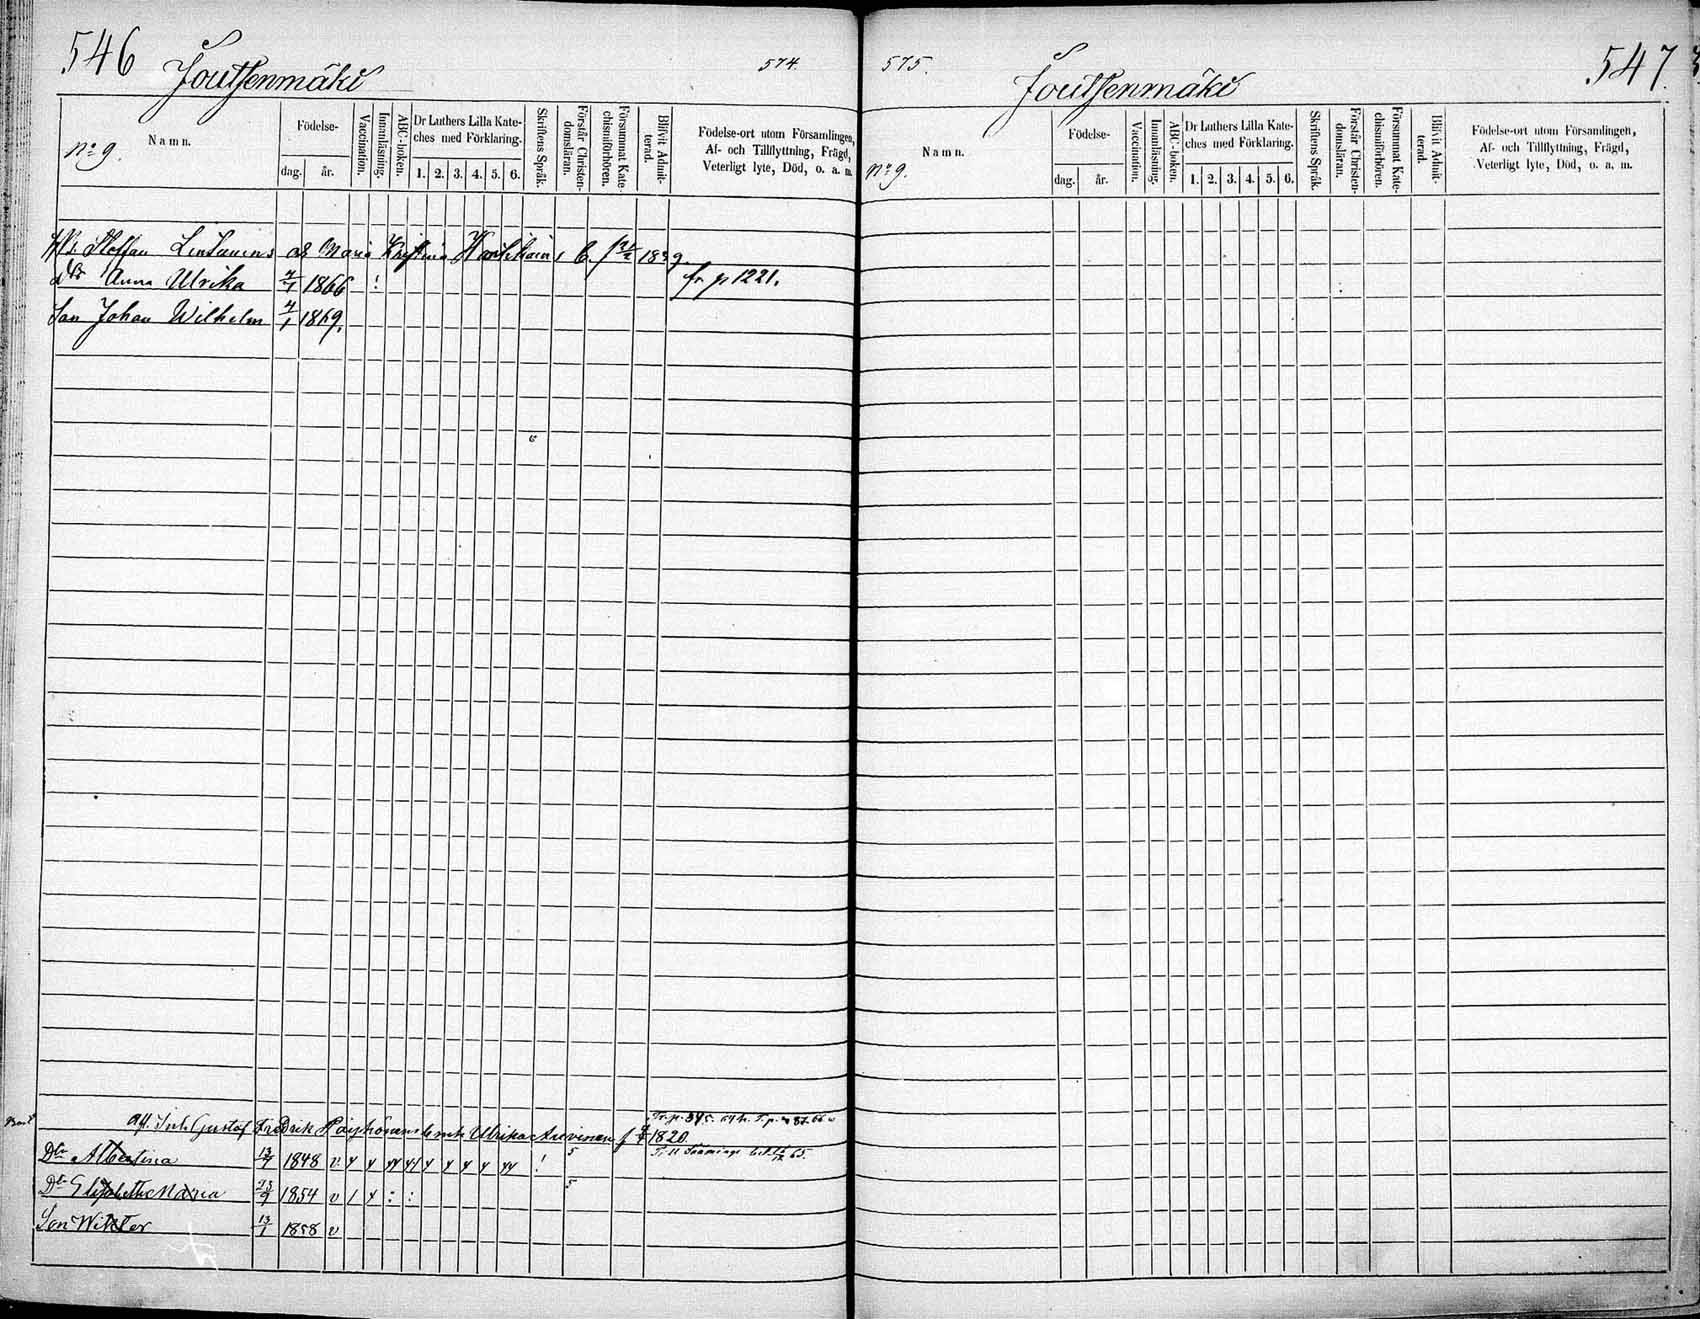 546 Joutsenmäki 574.
N:o 9. Namn.
Födelse- dag. år.
Vaccination.
Innanläsning.
ABC-boken.
Dr Luthers Lilla Kate-
ches med Förklaring.
1. 2. 3. 4. 5. 6.
Skriftens Språk.
Förstår Christen-
domsläran.
Försummat Kate-
chismiförhören.
Blifvit Admit-
terad.
Födelse-ort utom Församlingen,
Af- och Tillflyttning, Frägd,
Veterligt lyte, Död, o. a. m.
Staffan Maria 1839.
Dtr Anna Ulrika 1866 ! fr p 1221.
Son Johan Wilhelm 1869.
Gustaf Fredrik Ulrika 1820.
Dtr Albertina 13/7 1848 v ! 5
Dtr Elisabeth Maria 1854 v 5
Son Wiktor 13/1 1858 v
575. Joutsenmäki 547.
N:o 9. Namn.
Födelse- dag. år.
Vaccination.
Innanläsning.
ABC-boken.
Dr Luthers Lilla Kate-
ches med Förklaring.
1. 2. 3. 4. 5. 6.
Skriftens Språk.
Förstår Christen-
domsläran.
Försummat Kate-
chismiförhören.
Blifvit Admit-
terad.
Födelse-ort utom Församlingen,
Af- och Tillflyttning, Frägd,
Veterligt lyte, Död, o. a. m.